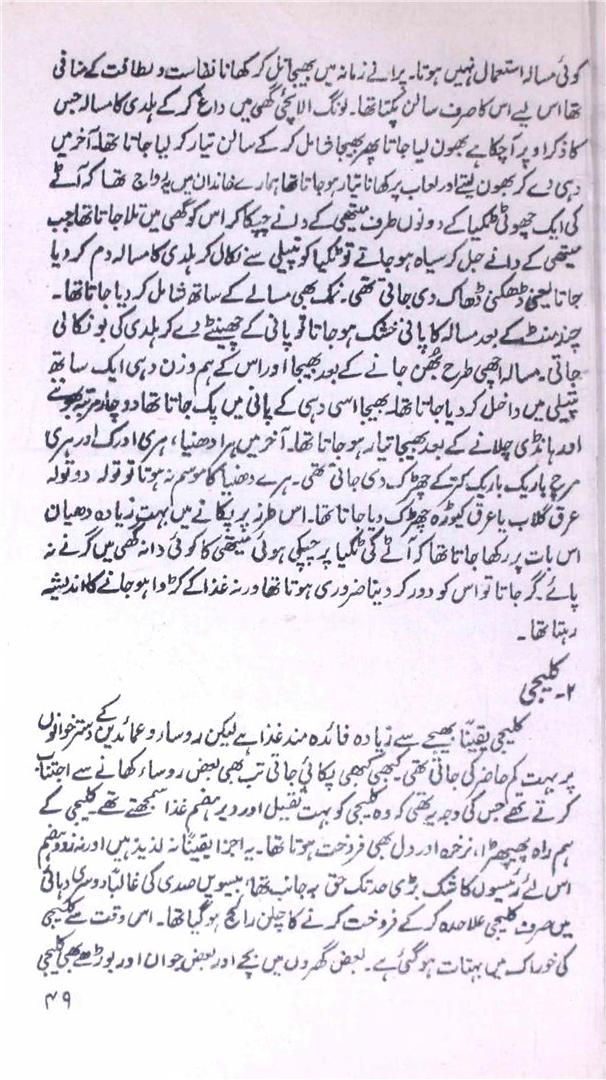 کوئی مسالہ استعمال نہیں ہوتا۔ پرانے زمانہ میں بھیجا تل کر کھانا نفاست و لطافت کے منافی
تھا اس لیے اس کا صرف سالن پکتا تھا۔ لونگ الائچی گھی میں داغ کر کے ہلدی کا مسالہ جس
کا ذکر اوپر آ چکا ہے بھون لیا جاتا پھر بھیجا شامل کر کے سالن تیار کر لیا جاتا تھا۔ آخر میں
دہی دے کر بھون لیتے اور لعاب پر کھانا تیار ہو جاتا تھا ہمارے خاندان میں یہ رواج تھا کہ آٹے
کی ایک چھوٹی ٹکیا کے دونوں طرف میتھی کے دانے چپکا کر اس کو گھی میں تلا جاتا تھا جب
میتھی کے دانے جل کر سیاہ ہو جاتے تو ٹکیا کو پتیلی سے نکال کر ہلدی کا مسالہ دم کر دیا
جاتا یعنی ڈھکنی ڈھاک دی جاتی تھی۔ نمک بھی مسالے کے ساتھ شامل کر دیا جاتا تھا۔
چند منٹ کے بعد مسالہ کا پانی خشک ہو جاتا تو پانی کے چھینٹے دے کر ہلدی کی بو نکالی
جاتی۔ مسالہ اچھی طرح بُھن جانے کے بعد بھیجا اور اس کے ہم وزن دہی ایک ساتھ
پتیلی میں داخل کر دیا جاتا تھا۔ بھیجا اسی دہی کے پانی میں پک جاتا تھا دو چار مرتبہ بھوننے
اور ہانڈی چلانے کے بعد بھیجا تیار ہو جاتا تھا۔ آخر میں ہرا دھنیا، ہری ادرک اور ہری
مرچ باریک باریک کتر کے چھڑک دی جاتی تھی۔ ہرے دھنیا کا موسم نہ ہوتا تو تولہ دو تولہ
عرق گلاب یا عرق کیوڑہ چھڑک دیا جاتا تھا۔ اس طرز پر پکانے میں بہت زیادہ دھیان
اس بات پر رکھا جاتا تھا کہ آٹے کی ٹکیا پر چپکی ہوئی میتھی کا کوئی دانہ گھی میں گرنے نہ
پائے۔ گر جاتا تو اس کو دور کر دینا ضروری ہوتا تھا ورنہ غذا کے کڑوا ہو جانے کا اندیشہ
رہتا تھا۔
۲۔ کلیجی
کلیجی یقیناً بھیجے سے زیادہ فائدہ مند غذا ہے لیکن روساء و عمائدین کے دسترخوانوں
پر بہت کم حاضر کی جاتی تھی۔ کبھی کبھی پکائی جاتی تب بھی بعض روساء کھانے سے اجتناب
کرتے تھے جس کی وجہ یہ تھی کہ وہ کلیجی کو بہت ثقیل اور دیر ہضم غذا سمجھتے تھے۔ کلیجی کے
ہم راہ پھیپھڑا، نرخرہ اور دل بھی فروخت ہوتا تھا۔ یہ اجزا یقیناً نہ لذیذ ہیں اور نہ زود ہضم
اس لئے رئیسوں کا شک بڑی حد تک حق بہ جانب تھا، بیسویں صدی کی غالباً دوسری دہائی
میں صرف کلیجی علاحدہ کر کے فروخت کرنے کا چلن رائج ہو گیا تھا۔ اس وقت سے کلیجی
کی خوراک میں بہتات ہو گئی ہے۔ بعض گھروں میں بچے اور بعض جوان اور بوڑھے بھی کلیجی
۴۹